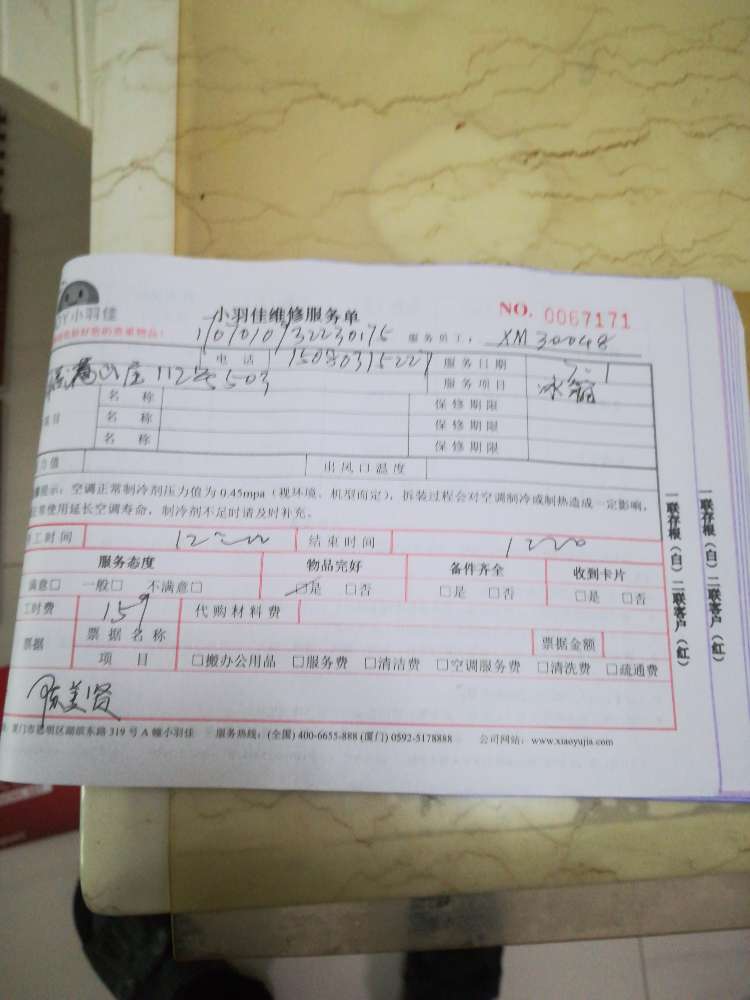 小羽佳
小羽佳维修服务单 NO. 0067171
服务员工: XM30048
电话 15080315227 服务日期
112 503 服务项目 冰箱
名称 保修期限
项目 名称 保修期限
名称 保修期限
力值 出风口温度
提示:空调正常制冷剂压力值为0.45mpa(视环境、机型而定),拆装过程会对空调制冷或制热造成一定影响,
正常使用延长空调寿命,制冷剂不足时请及时补充。
开工时间 结束时间
服务态度 物品完好 备件齐全 收到卡片
满意□ 一般□ 不满意□ □是 □否 □是 □否 □是 □否
工时费 159 代购材料费
票据 票据名称 票据金额
项目 □搬办公用品 □服务费 □清洁费 □空调服务费 □清洗费 □疏通费
陈美贤
厦门市思明区湖滨东路319号A幢小羽佳 服务热线:(全国)400-6655-888(厦门)0592-5178888 公司网站:www.xiaoyujia.com
一联存根(白)二联客户(红)
一联存根(白)二联客户(红)